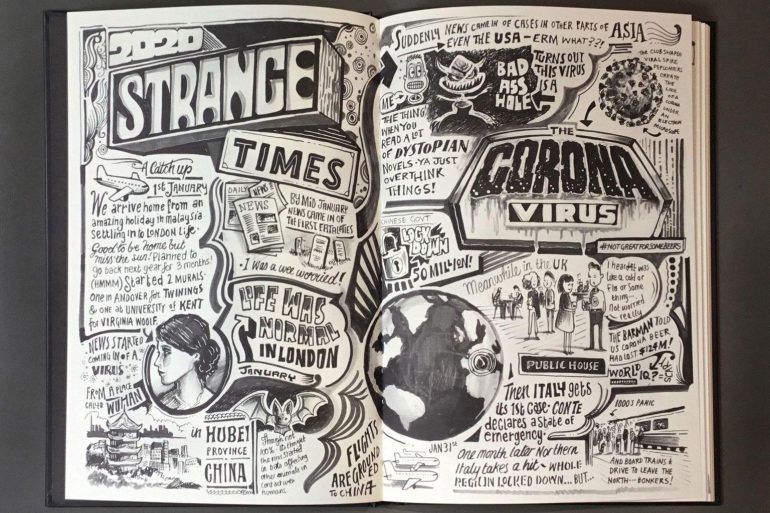 2020
STRANGE
TIMES
A Catch up
1ST JANUARY
We arrive home from an
amazing holiday in malaysia
settling in to LONDON Life.
Good to be home but
miss the sun! Planned to
go back next year for 3 months!
(HMMM) Started 2 MURALS-
one in ANDOVER for TWININGS
& one at UNIVERSITY of KENT
for VIRGINIA WOOLF.
NEWS STARTED
COMING IN OF A
VIRUS
FROM A PLACE
CALLED WUHAN
in HUBEI
PROVINCE
CHINA
DAILY NEWS
NEWS
By MID JANUARY
NEWS CAME IN OF
THE FIRST FATALITIES
• I was a wee worried!
LIFE WAS
NORMAL
IN LONDON
JANUARY
Though not
100% its thought
the virus started
in bats affecting
other animals in
contact with
humans
FLIGHTS
ARE GROUNDED
TO CHINA
SUDDENLY NEWS CAME IN OF CASES IN OTHER PARTS OF ASIA
EVEN THE USA - ERM WHAT??!
BAD
ASS
HOLE
TURNS OUT
THIS VIRUS
IS A
THE CLUB-SHAPED
VIRAL SPIKE
PEPLOMERS
CREATE
THE
LOOK
OF A
CORONA
UNDER
AN
ELECTRON
MICROSCOPE
ME
THE THING
WHEN YOU
READ A LOT
OF DYSTOPIAN
NOVELS - YA JUST
OVERTHINK
THINGS!
THE
CORONA
VIRUS
#NOTGREATFORSOMEBEERS
CHINESE GOVT
LOCK
DOWN
50 MILLION!
Meanwhile in the UK
I heard it was
like a cold or
Flu or some
thing...
Not worried
really
PUBLIC HOUSE
THE BARMAN TOLD
US CORONA BEER
HAD LOST $124M!
WORLD
IQ?
JAN 31st
Then ITALY gets
its 1st case - CONTE
declares a state of
emergency.
One month later Northern
Italy takes a hit - WHOLE
REGION LOCKED DOWN... BUT...
1000'S PANIC
AND BOARD TRAINS &
DRIVE TO LEAVE THE
NORTH... BONKERS!